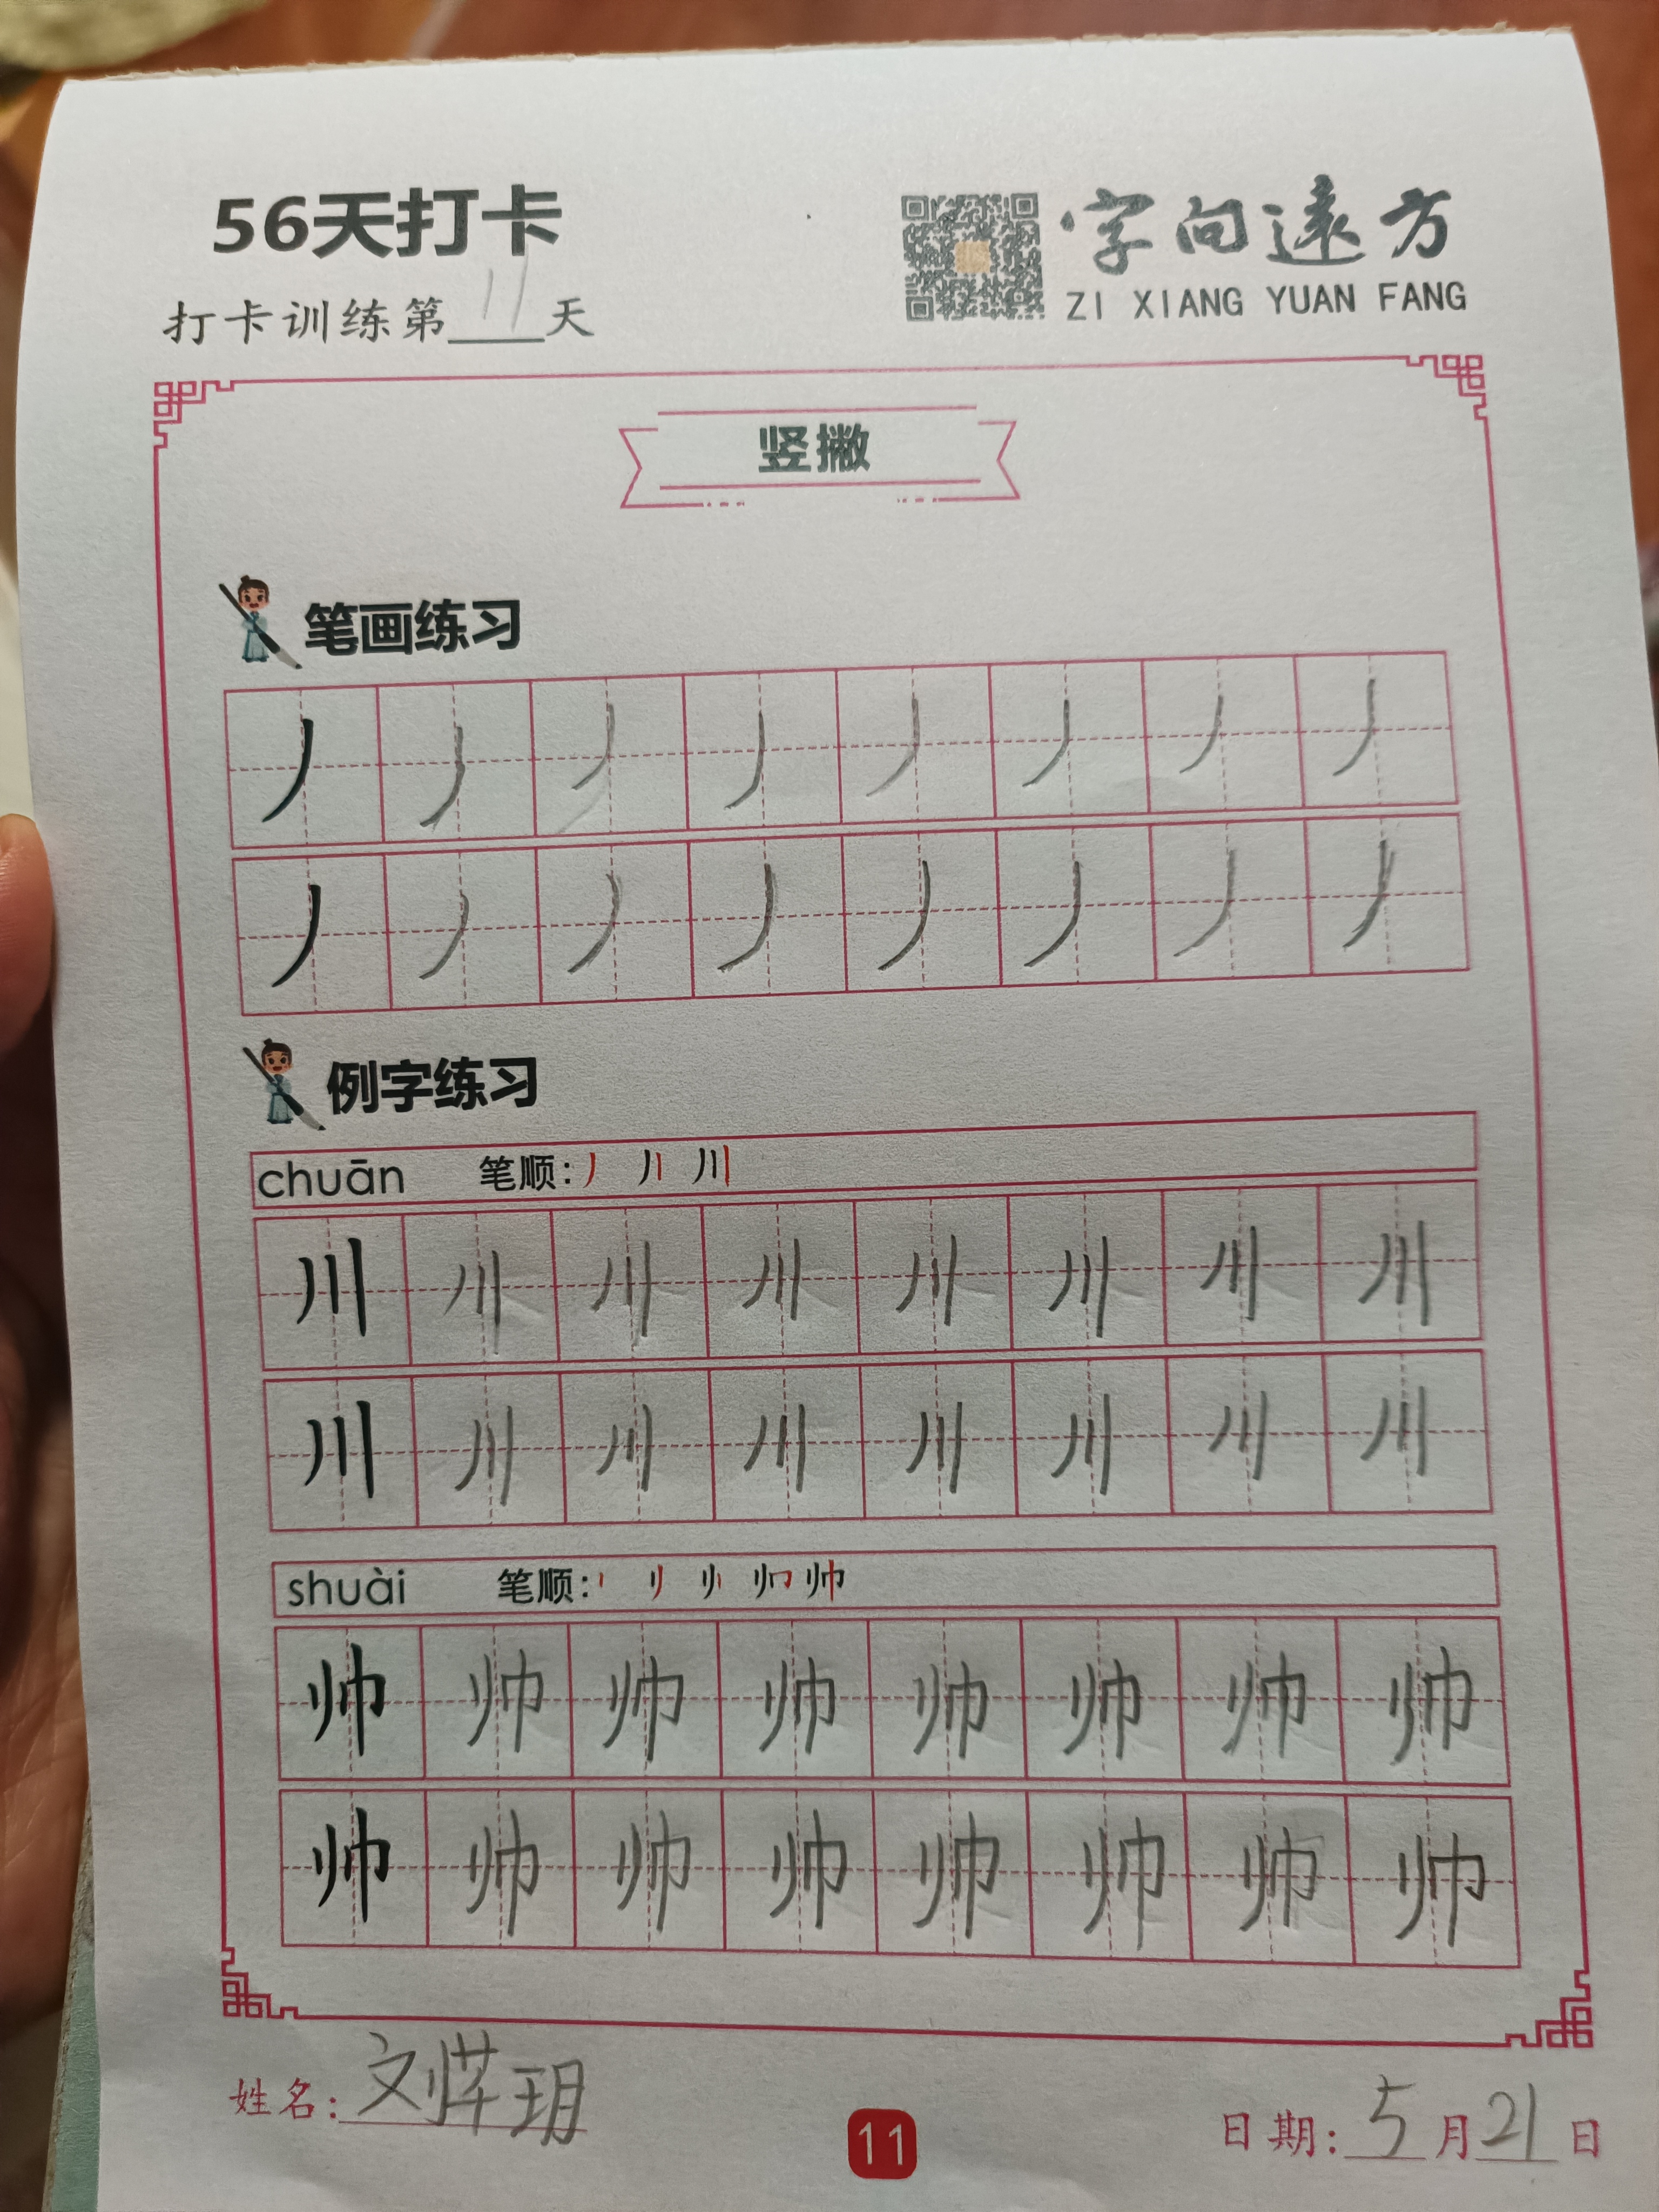 56天打卡
字向遠方
ZI XIANG YUAN FANG
打卡训练第11天
竖撇
笔画练习
丿丿丿丿丿丿丿丿
丿丿丿丿丿丿丿丿
例字练习
chuān 笔顺: 丿 川
川川川川川川川川
川川川川川川川川
shuài 笔顺: 帅
帅帅帅帅帅帅帅帅
帅帅帅帅帅帅帅帅
姓名: 文 玥
11
日期: 5月21日